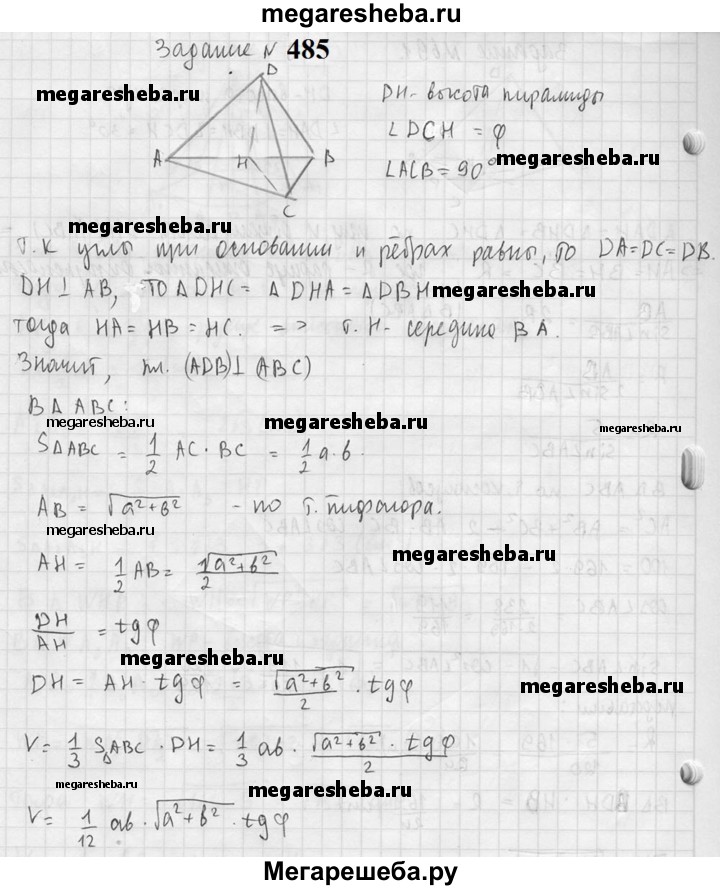 megaresheba.ru
Задание N 485
D
A
H
B
C
DH - высота пирамиды
∠DCH = φ
∠ACB = 90°
megaresheba.ru
megaresheba.ru
megaresheba.ru
Т.К углы при основании и рёбрах равны, то DA=DC=DB.
DH⊥AB, то ΔDHC = ΔDHA = ΔDBH megaresheba.ru
тогда HA = HB = HC. => т. H- середина BA.
Значит, пл. (ADB)⊥(ABC)
В Δ ABC:
megaresheba.ru
megaresheba.ru
SΔABC = 1/2 AC · BC = 1/2 a·b.
AB = √a²+b² - по т. пифагора.
megaresheba.ru
AH = 1/2 AB = √a²+b²/2
megaresheba.ru
DH/AH = tgφ
megaresheba.ru
DH = AH · tgφ = √a²+b²/2 · tgφ
megaresheba.ru
V = 1/3 SΔABC · DH = 1/3 ab · √a²+b² · tgφ/2
megaresheba.ru
megaresheba.ru
V = 1/12 ab · √a²+b² · tgφ
megaresheba.ru
Мегарешеба.ру